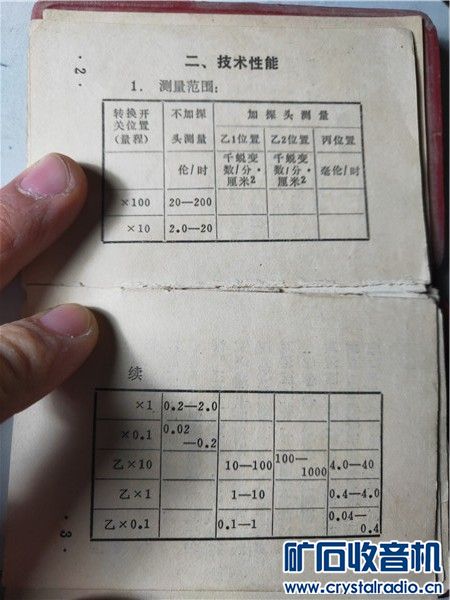 ·2·
二、技术性能
1. 测量范围：
转换开关位置(量程) 不加探头测量 加探头测量
乙1位置 乙2位置 丙位置
伦/时 千蜕变数/分·厘米2 千蜕变数/分·厘米2 毫伦/时
×100 20—200
×10 2.0—20
续
×1 0.2—2.0
×0.1 0.02—0.2
乙×10 10—100 100—1000 4.0—40
乙×1 1—10 0.4—4.0
乙×0.1 0.1—1 0.04—0.4
·3·
矿石收音机
www.crystalradio.cn